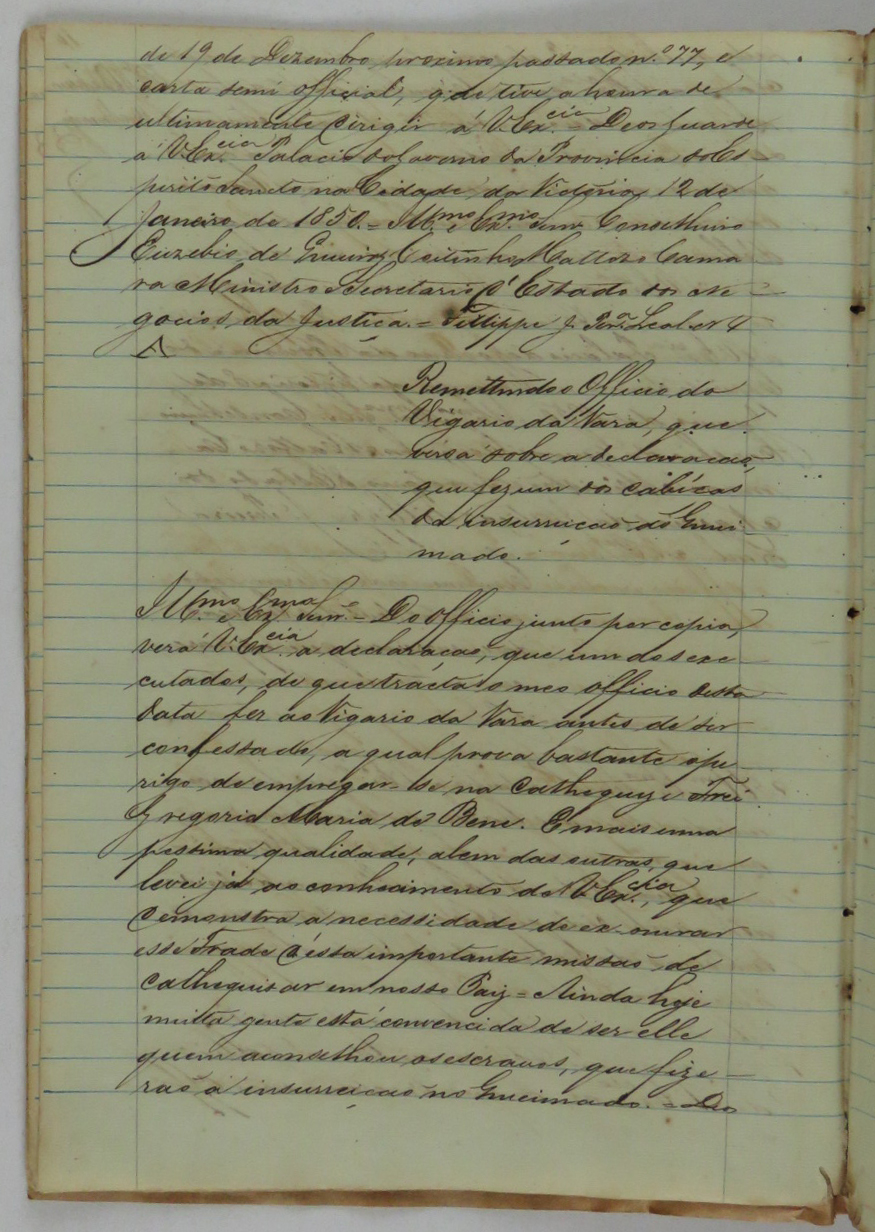 de 19 de Dezembro proximo passado n.º 77, e
carta semi official, que tive a honra de
ultimamente dirigir á V. Ex.cia = Deos Guarde
á V. Ex.cia Palacio do Governo da Provincia do Es-
pirito Sancto na Cidade da Victoria, 12 de
Janeiro de 1850. = Ill.mo e Ex.mo Snr. Conselheiro
Euzebio de Queiroz Coitinho Mattozo Cama-
ra Ministro e Secretario d'Estado dos Ne-
gocios da Justiça. = Fillippe J. Per.a Leal
Remettendo o Officio do
Vigario da Vara, que
versa sobre a declaracaõ,
que fez um dos cabeças
da insurreicaõ do Quei-
mado.
Ill.mo e Ex.mo Snr. = Do officio junto por copia,
verá V. Ex.cia a declaracaõ, que um dos exe-
cutados, de que tracta o meo officio desta
data fez ao Vigario da Vara antes de ser
confessado, a qual prova bastante o pe-
rigo de empregar-se na Catheqeuze Frei
Gregorio Maria de Bene. E mais uma
pessima qualidade, alem das outras, que
levei já ao conhecimento de V. Ex.cia, que
demonstra a necessidade de exonerar
esse Frade d'esta importante missaõ de
cathequisar em nosso Paiz = Ainda hoje
muita gente está convencida de ser elle
quem aconselhou os escravos, que fize-
raõ a insurreicaõ no Queimado. = Deos